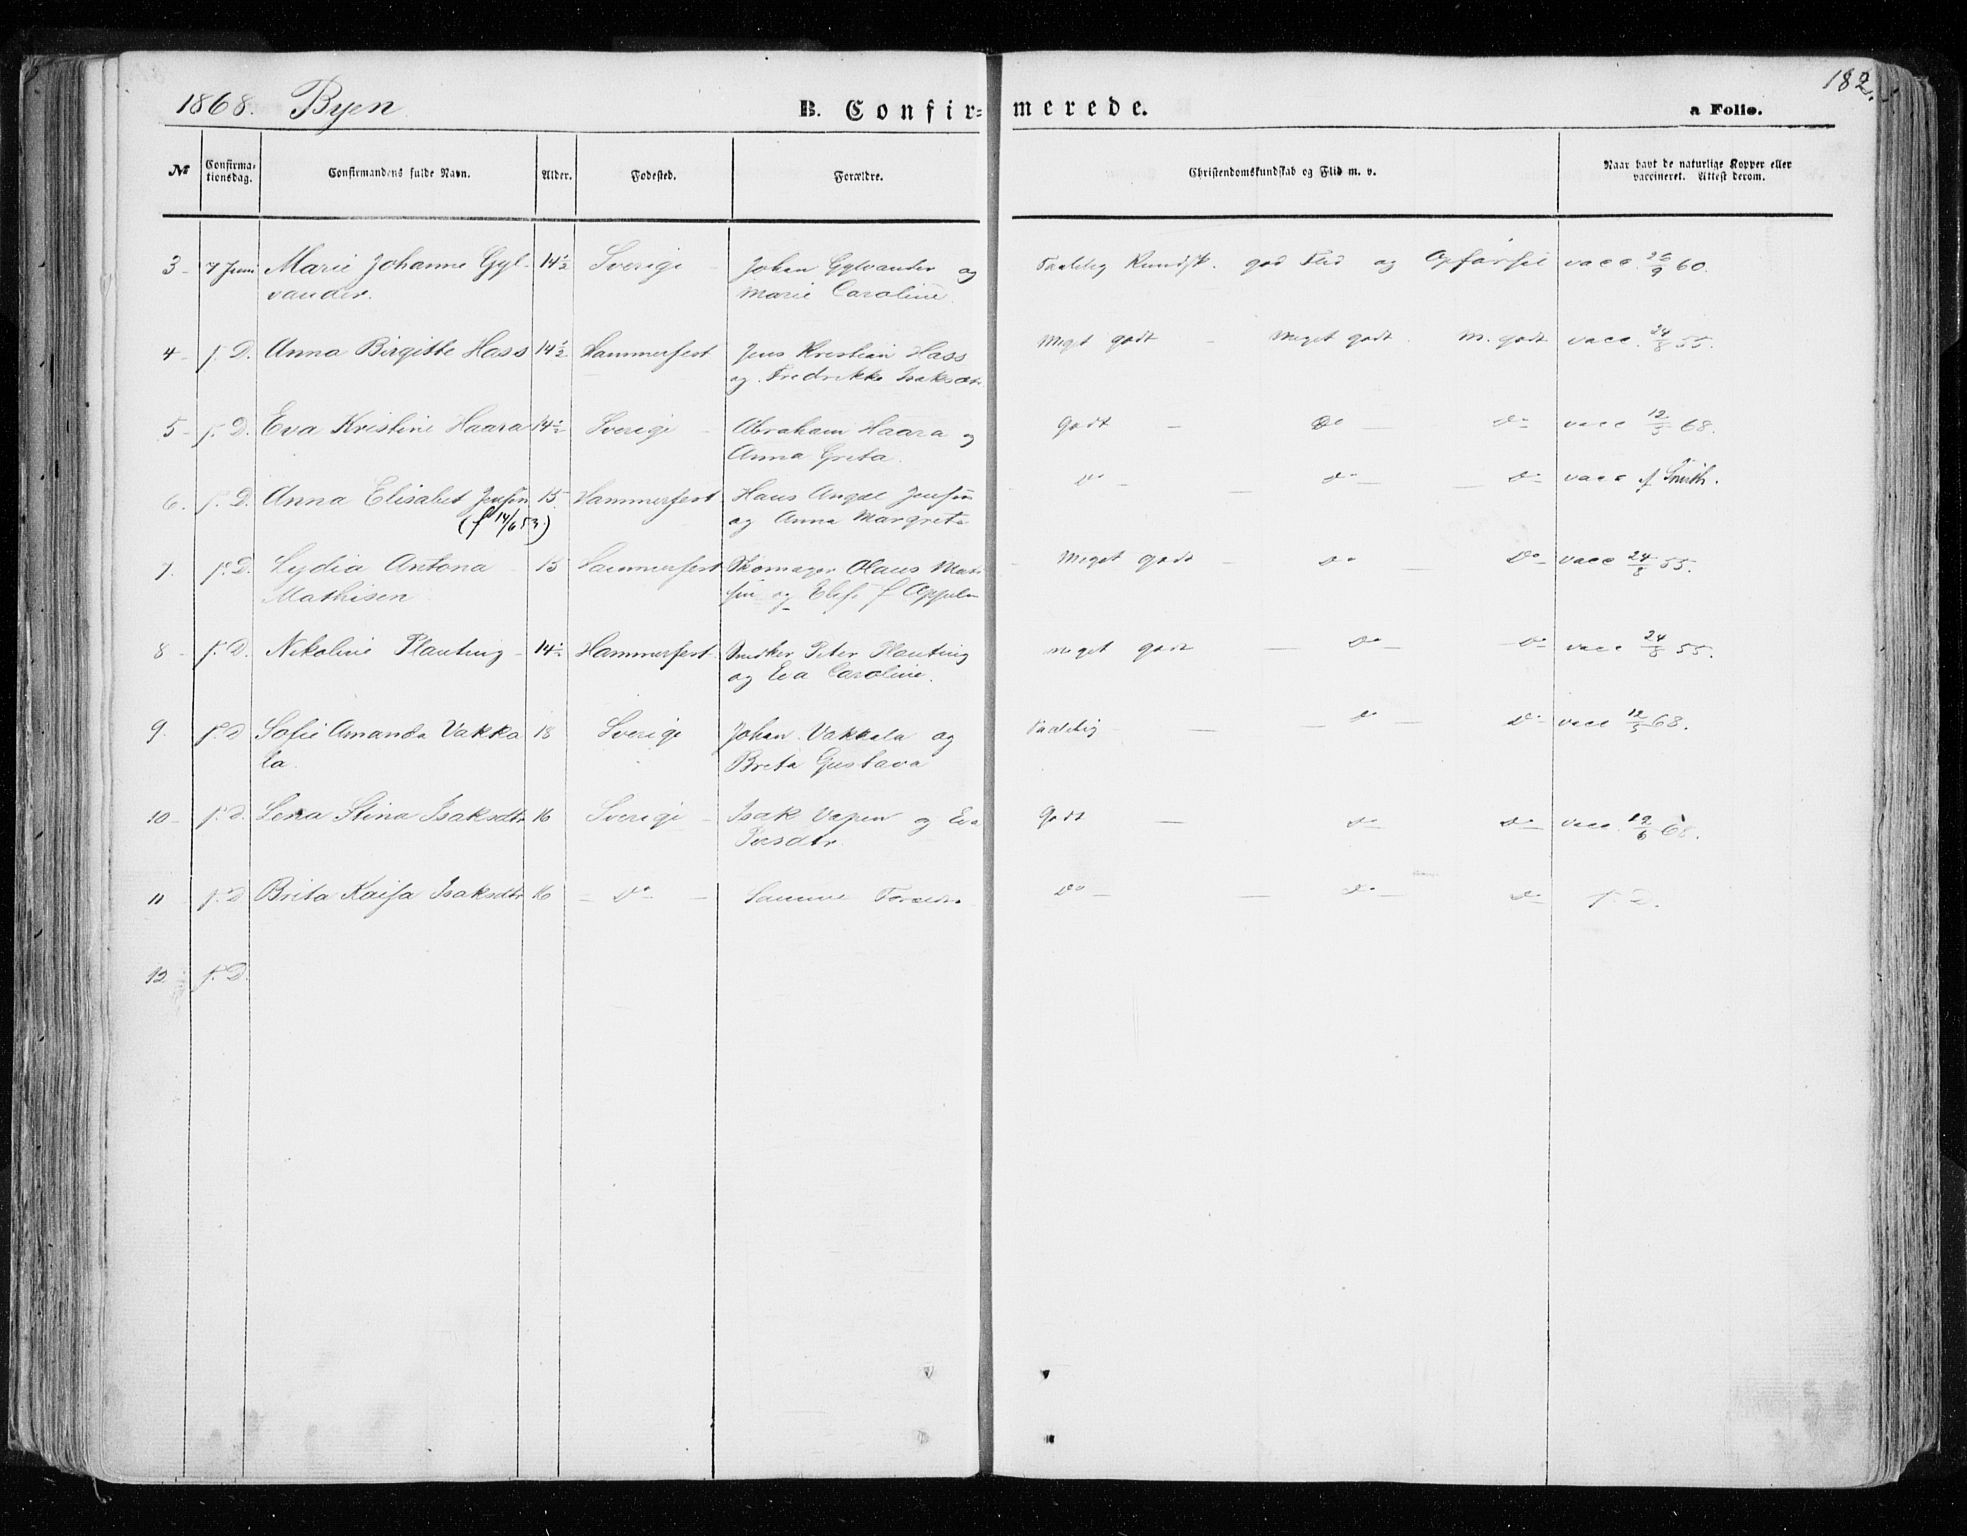 1868. Byen. B. Confirmerede. a Folio. 182.
No Confirmationsdag. Confirmandens fulde Navn. Alder. Fødested. Forældre. Christendomskundskab og Flid m. v. Naar havt de naturlige Kopper eller vaccineret. Attest derom.
3 - 7 Juni Marie Johanne Gyl- 14 1/2 Sverige - Johan Gylvander og Taalelig Kundsk. god Flid og Opførsel vacc. 26/9 60.
vander. Marie Caroline.
4 - s. D. Anna Birgitte Hass 14 1/2 Hammerfest Jens Kristian Hass Meget godt - Meget godt. M. godt vacc. 24/8 55.
og Fredrikke Isaksdtr
5 - s. D. Eva Kristine Haara 14 1/2 Sverige - Abraham Haara og Godt - Do - Do - vacc 12/5 68.
Anna Greta.
6. s. D. Anna Elisabet Jensen 15 Hammerfest Hans Angel Jensen Do - - Do - - Do - vacc af Smith.
(f 14/6 53.) og Anna Margrete
7. s. D. Lydia Antona - 15 Hammerfest Olaus - Meget godt - Do - Do - vacc 24/8 55.
Mathisen og Elis. f Appel
8 - s. D. Nikoline Plauting - 14 1/2 Hammerfest Peter Plauting meget godt - Do - Do - vacc 24/8 55.
og Eva Caroline.
9. s. D Sofie Amanda Vakka 18 Sverige Johan Vakkala og Taalelig - - Do - Do - vacc 12/5 68.
la. Breta Gustava
10 - s. D. Lena Stina Isaksdtr 16 Sverige - Isak Vapen og Eva Godt - Do - Do - vacc. 12/5 68.
11 - s. D Brita Kaisa Isaksdtr 16 - Do - Samme Forældre Do - - Do - Do - s. D.
12 s. D.